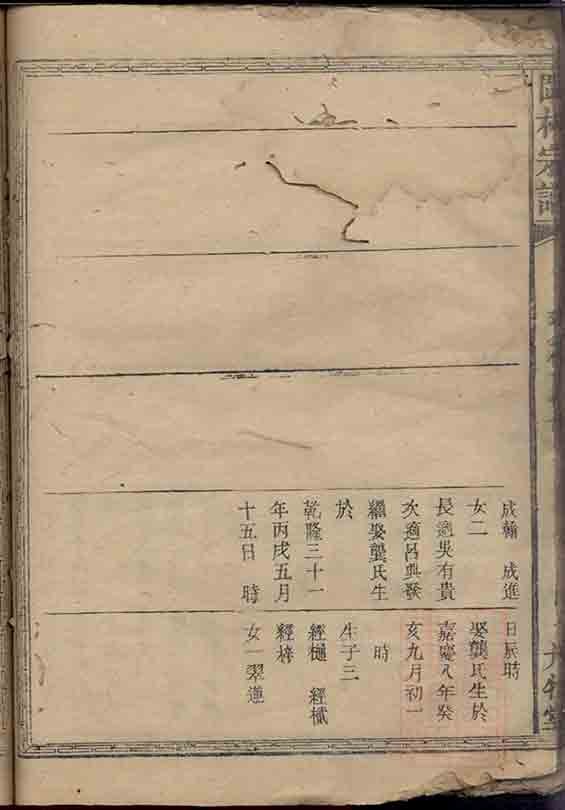 宗譜
成翰 成進
女二
長適吳有貴
次適呂典發
繼娶龔氏生
於
乾隆三十一
年丙戌五月
十五日 時
日辰時
娶龔氏生於
嘉慶八年癸
亥九月初一
時
生子三
經樋 經檝
經梓
女一翠蓮